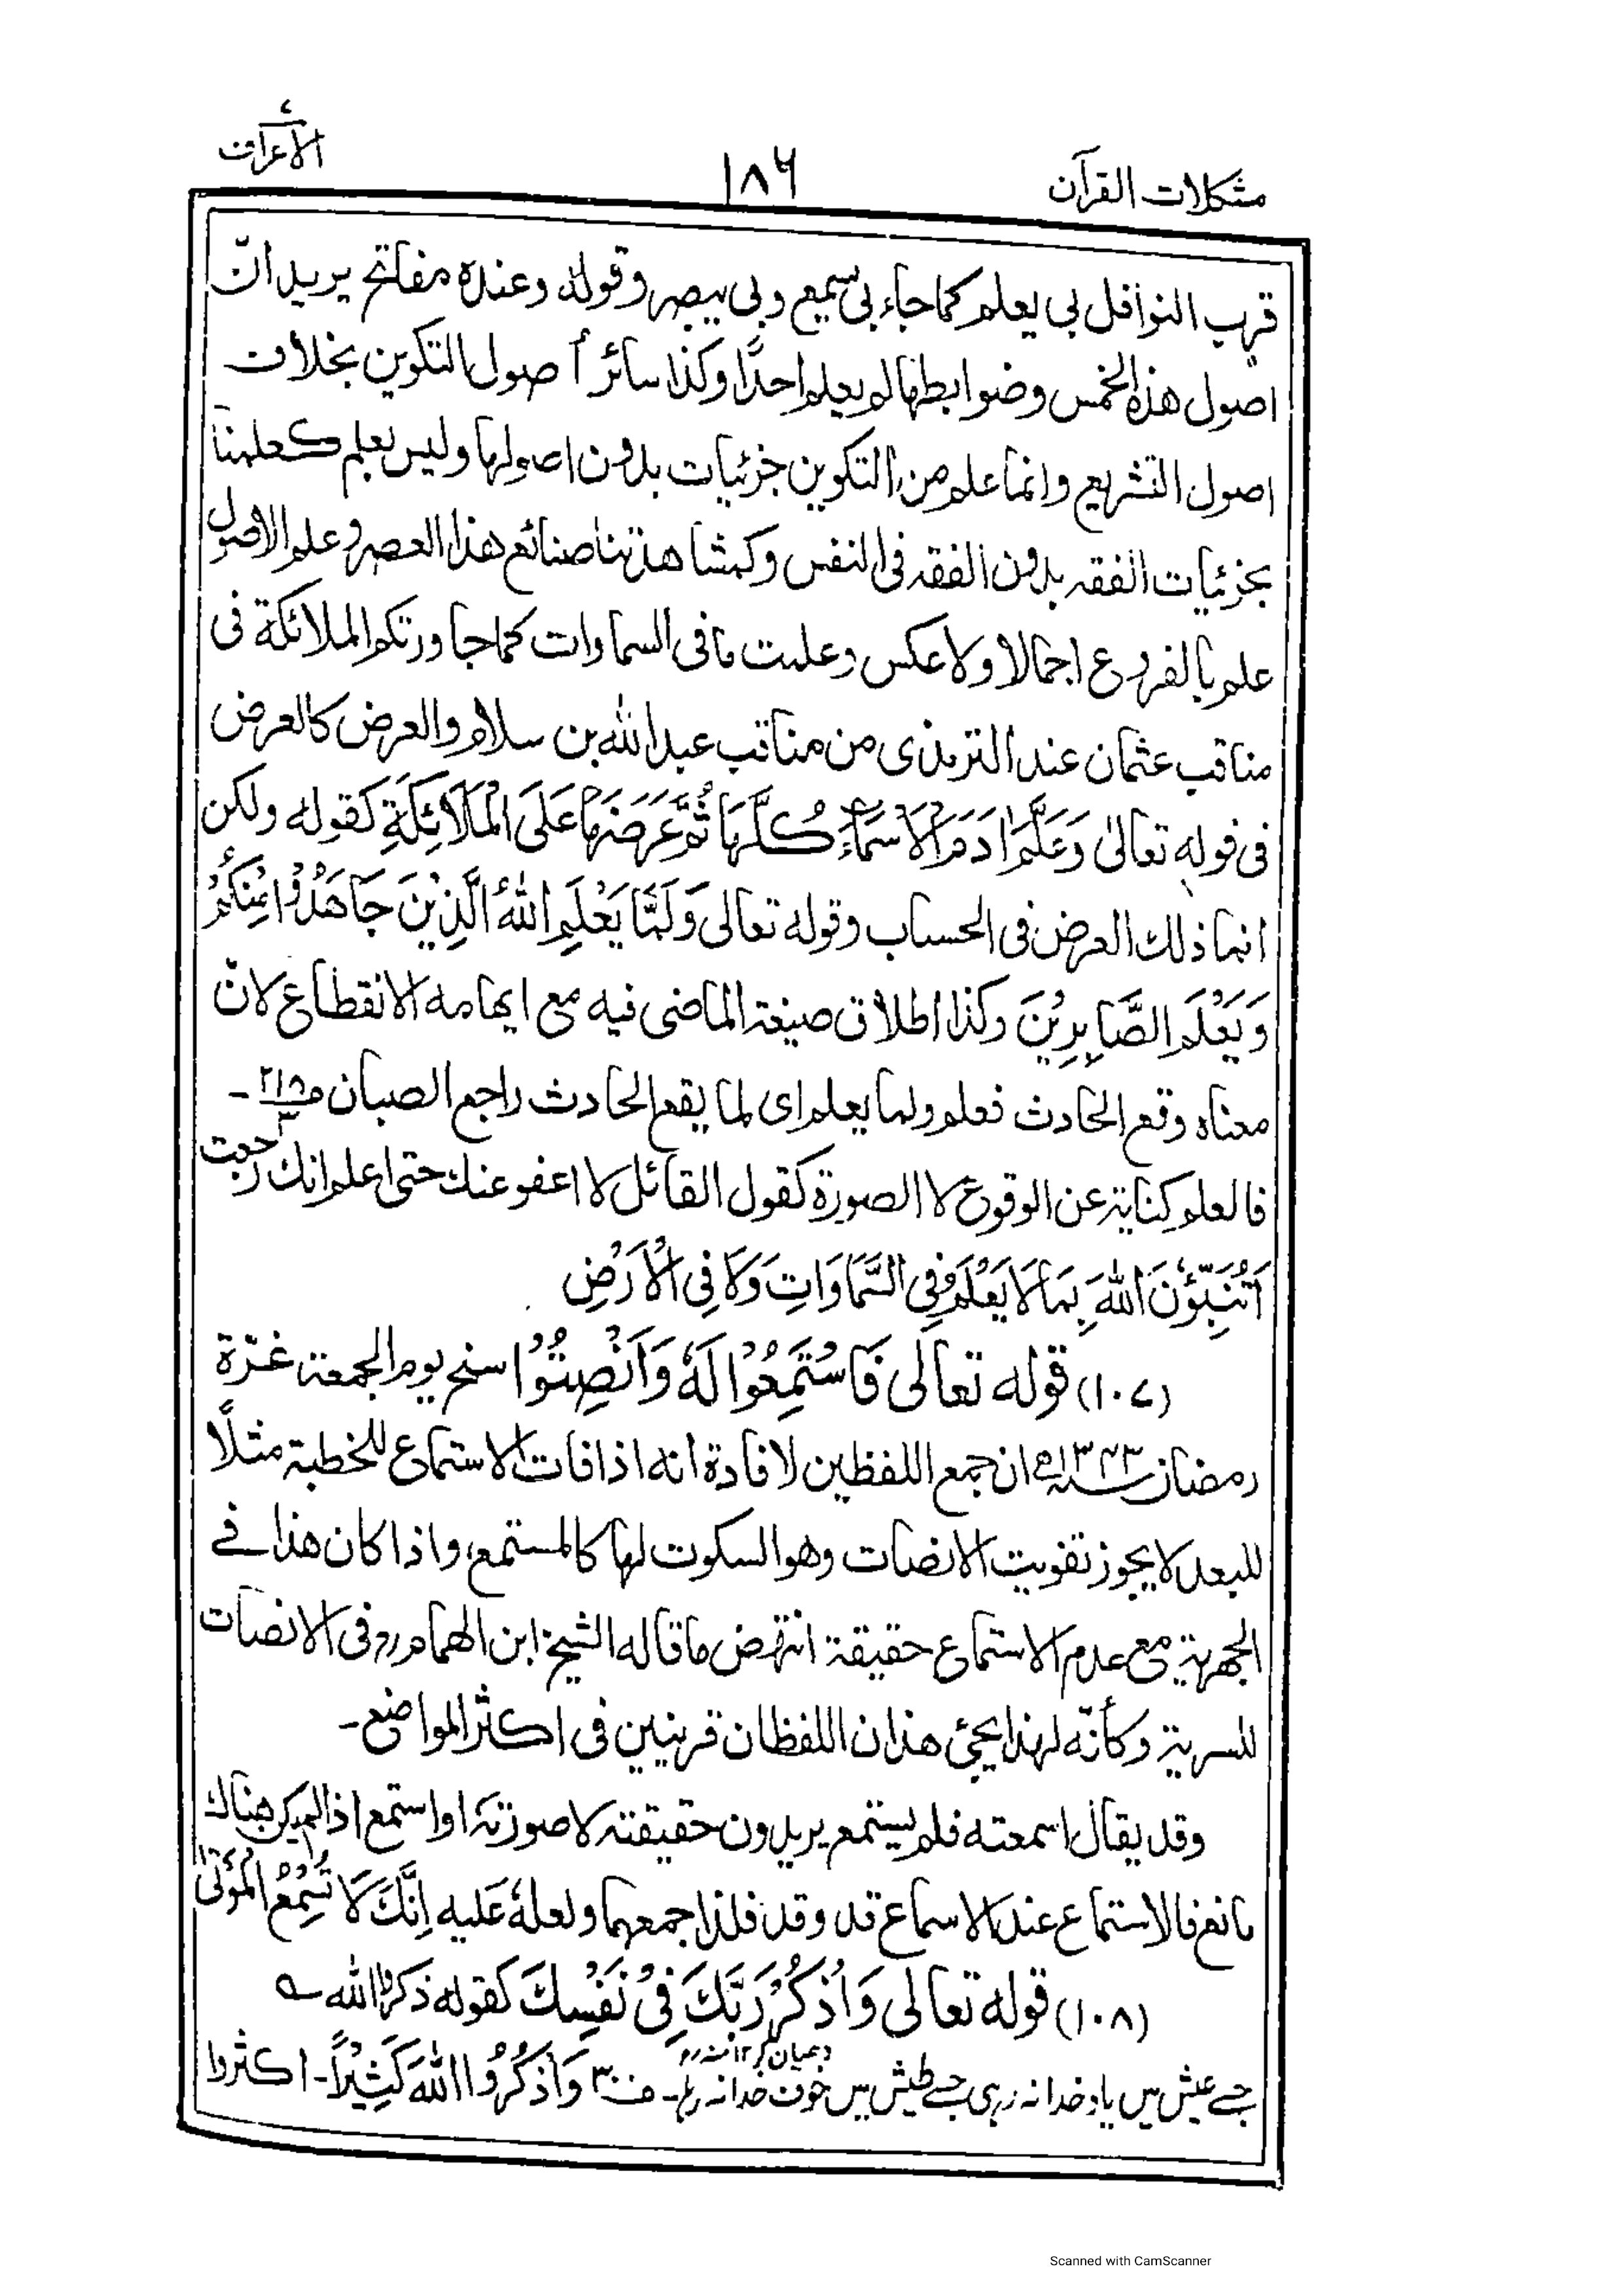 مشكلات القرآن
١٨٦
الأعراف
قرب النوافل بى يعلم كما جاء بى سميع وبى يبصر وقوله وعنده مفاتح يريد انّ
اصول هذه الخمس وضوابطها لم يعلم احدًا وكذا سائر أصول التكوين بخلاف
اصول التشريع وانما علم من التكوين جزئيات بدون اصولها وليس بعلم كعلمنا
بجزئيات الفقه بدون الفقه فى النفس وكمشاهدتنا صنائع هذا العصر وعلم الاصول
علم بالفروع اجمالا ولا عكس وعلمت مافى السماوات كما جاورتكم الملائكة فى
مناقب عثمان عند الترمذى من مناقب عبد الله بن سلام والعرض كالعرض
فى قوله تعالىٰ وَعَلَّمَ اٰدَمَ الْاَسْمَآءَ كُلَّهَا ثُمَّ عَرَضَهُمْ عَلَى الْمَلَائِكَةِ كقوله ولكن
انما ذلك العرض فى الحساب وقوله تعالى وَلَمَّا يَعْلَمِ اللّٰهُ الَّذِيْنَ جَاهَدُوْا مِنْكُمْ
وَيَعْلَمَ الصَّابِرِيْنَ وكذا اطلاق صيغة الماضى فيه مع ايهامه الانقطاع لانّ
معناه وقع الحادث فعلم ولما يعلم اى لما يقع الحادث راجع الصبان ص
فالعلم كناية عن الوقوع لا الصورة كقول القائل لا اعفو عنك حتى اعلم انك رجعت
اَتُنَبِّؤُنَ اللّٰهَ بِمَا لَا يَعْلَمُ فِى السَّمَاوَاتِ وَلَا فِى الْاَرْضِ
(١٠٧) قوله تعالى فَاسْتَمِعُوْا لَهٗ وَاَنْصِتُوْا سنح يوم الجمعة غرّة
رمضان سنه ١٣٤٣ھ ان جمع اللفظين لافادة انه اذا فات الاستماع للخطبة مثلًا
للبعد لا يجوز تفويت الانصات وهو السكوت لها كالمستمع، واذا كان هذا فے
الجهرية مع عدم الاستماع حقيقة انتهض ما قاله الشيخ ابن الهمام رد فى الانصات
للسرية وكأنّه لهذا يجئ هذان اللفظان قرينين فى اكثر المواضع۔
وقد يقال اسمعته فلم يستمع يريدون حقيقته لا صورته او استمع اذا لم يكن هناك
مانع فالاستماع عند الاسماع قد وقد فلذا جمعهما ولعله عليه اِنَّكَ لَا تُسْمِعُ الْمَوْتٰى
(١٠٨) قوله تعالى وَاذْكُرْ رَبَّكَ فِىْ نَفْسِكَ كقوله ذكروا الله ؎
دھیان کر ١٢ منہ رح
جسے عیش میں یاد خدا نہ رہی جسے طیش میں خوف خدا نہ رہا۔ ف٣ وَاذْكُرُوا اللهَ كَثِيْرًا۔ اكثروا
Scanned with CamScanner